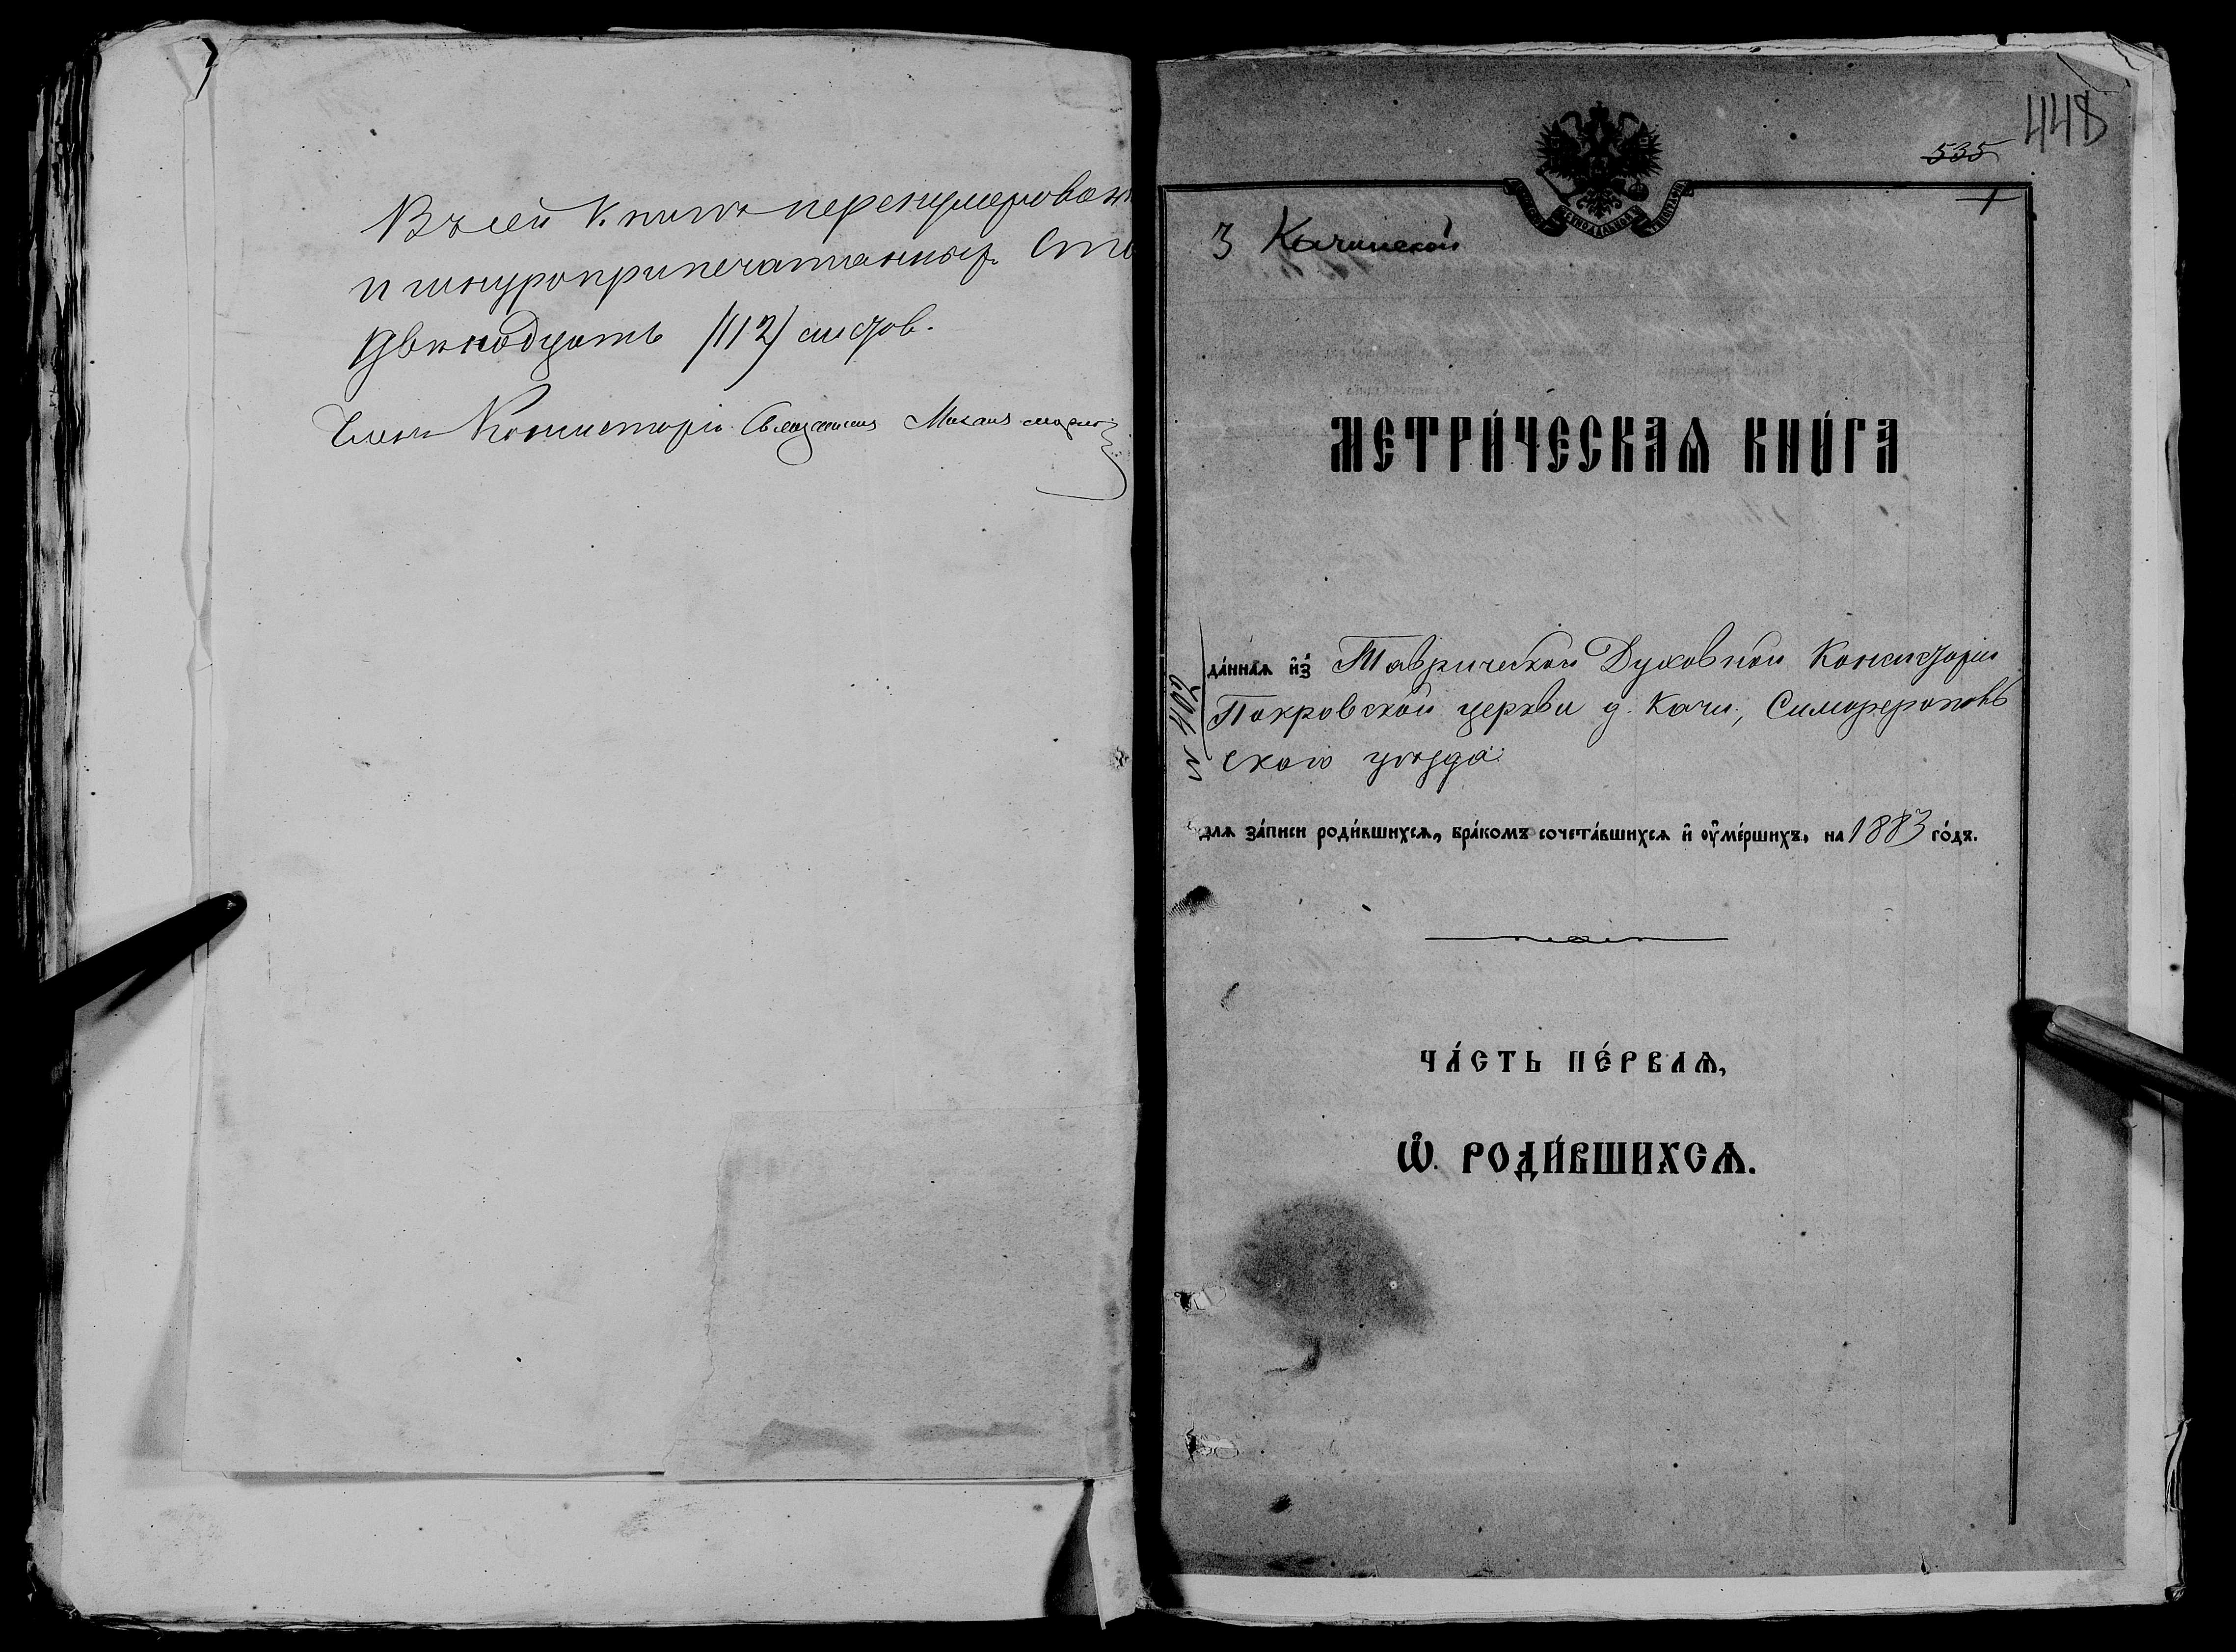 Въ сей Книгѣ перенумерован
и шнуроприпечатанныхъ Сто
двѣнадцать /112/ листов.
Членъ Консисторіи Священник Михаил
448
535
1
3 Качинской
МЕТРИ́ЧЕСКАѦ КНИ́ГА
да́ннаѧ и҆з̾ Таврической Духовной Консисторіи
Покровской церкви д. Качи, Симферополь
скаго уѣзда
для за́писи роди́вшихсѧ, бра́комъ сочета́вшихсѧ и҆ ᲂу҆ме́ршихъ, на 1883 го́дъ.
ЧА́СТЬ ПЕ́РВАѦ,
Ѡ҆ РОДИ́ВШИХСѦ.